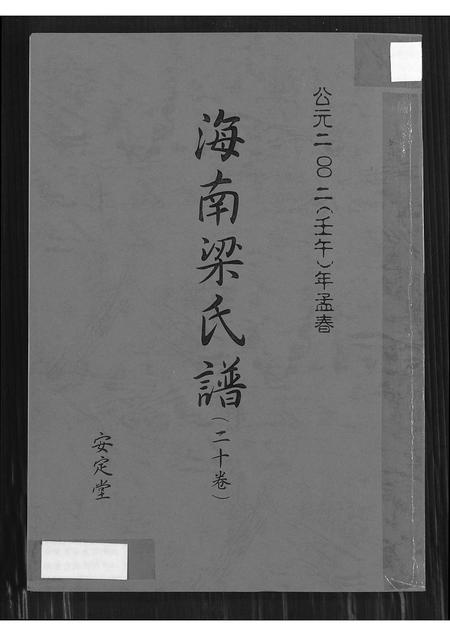 公元二〇〇二(壬午)年孟春
海南梁氏譜
(二十卷)
安定堂